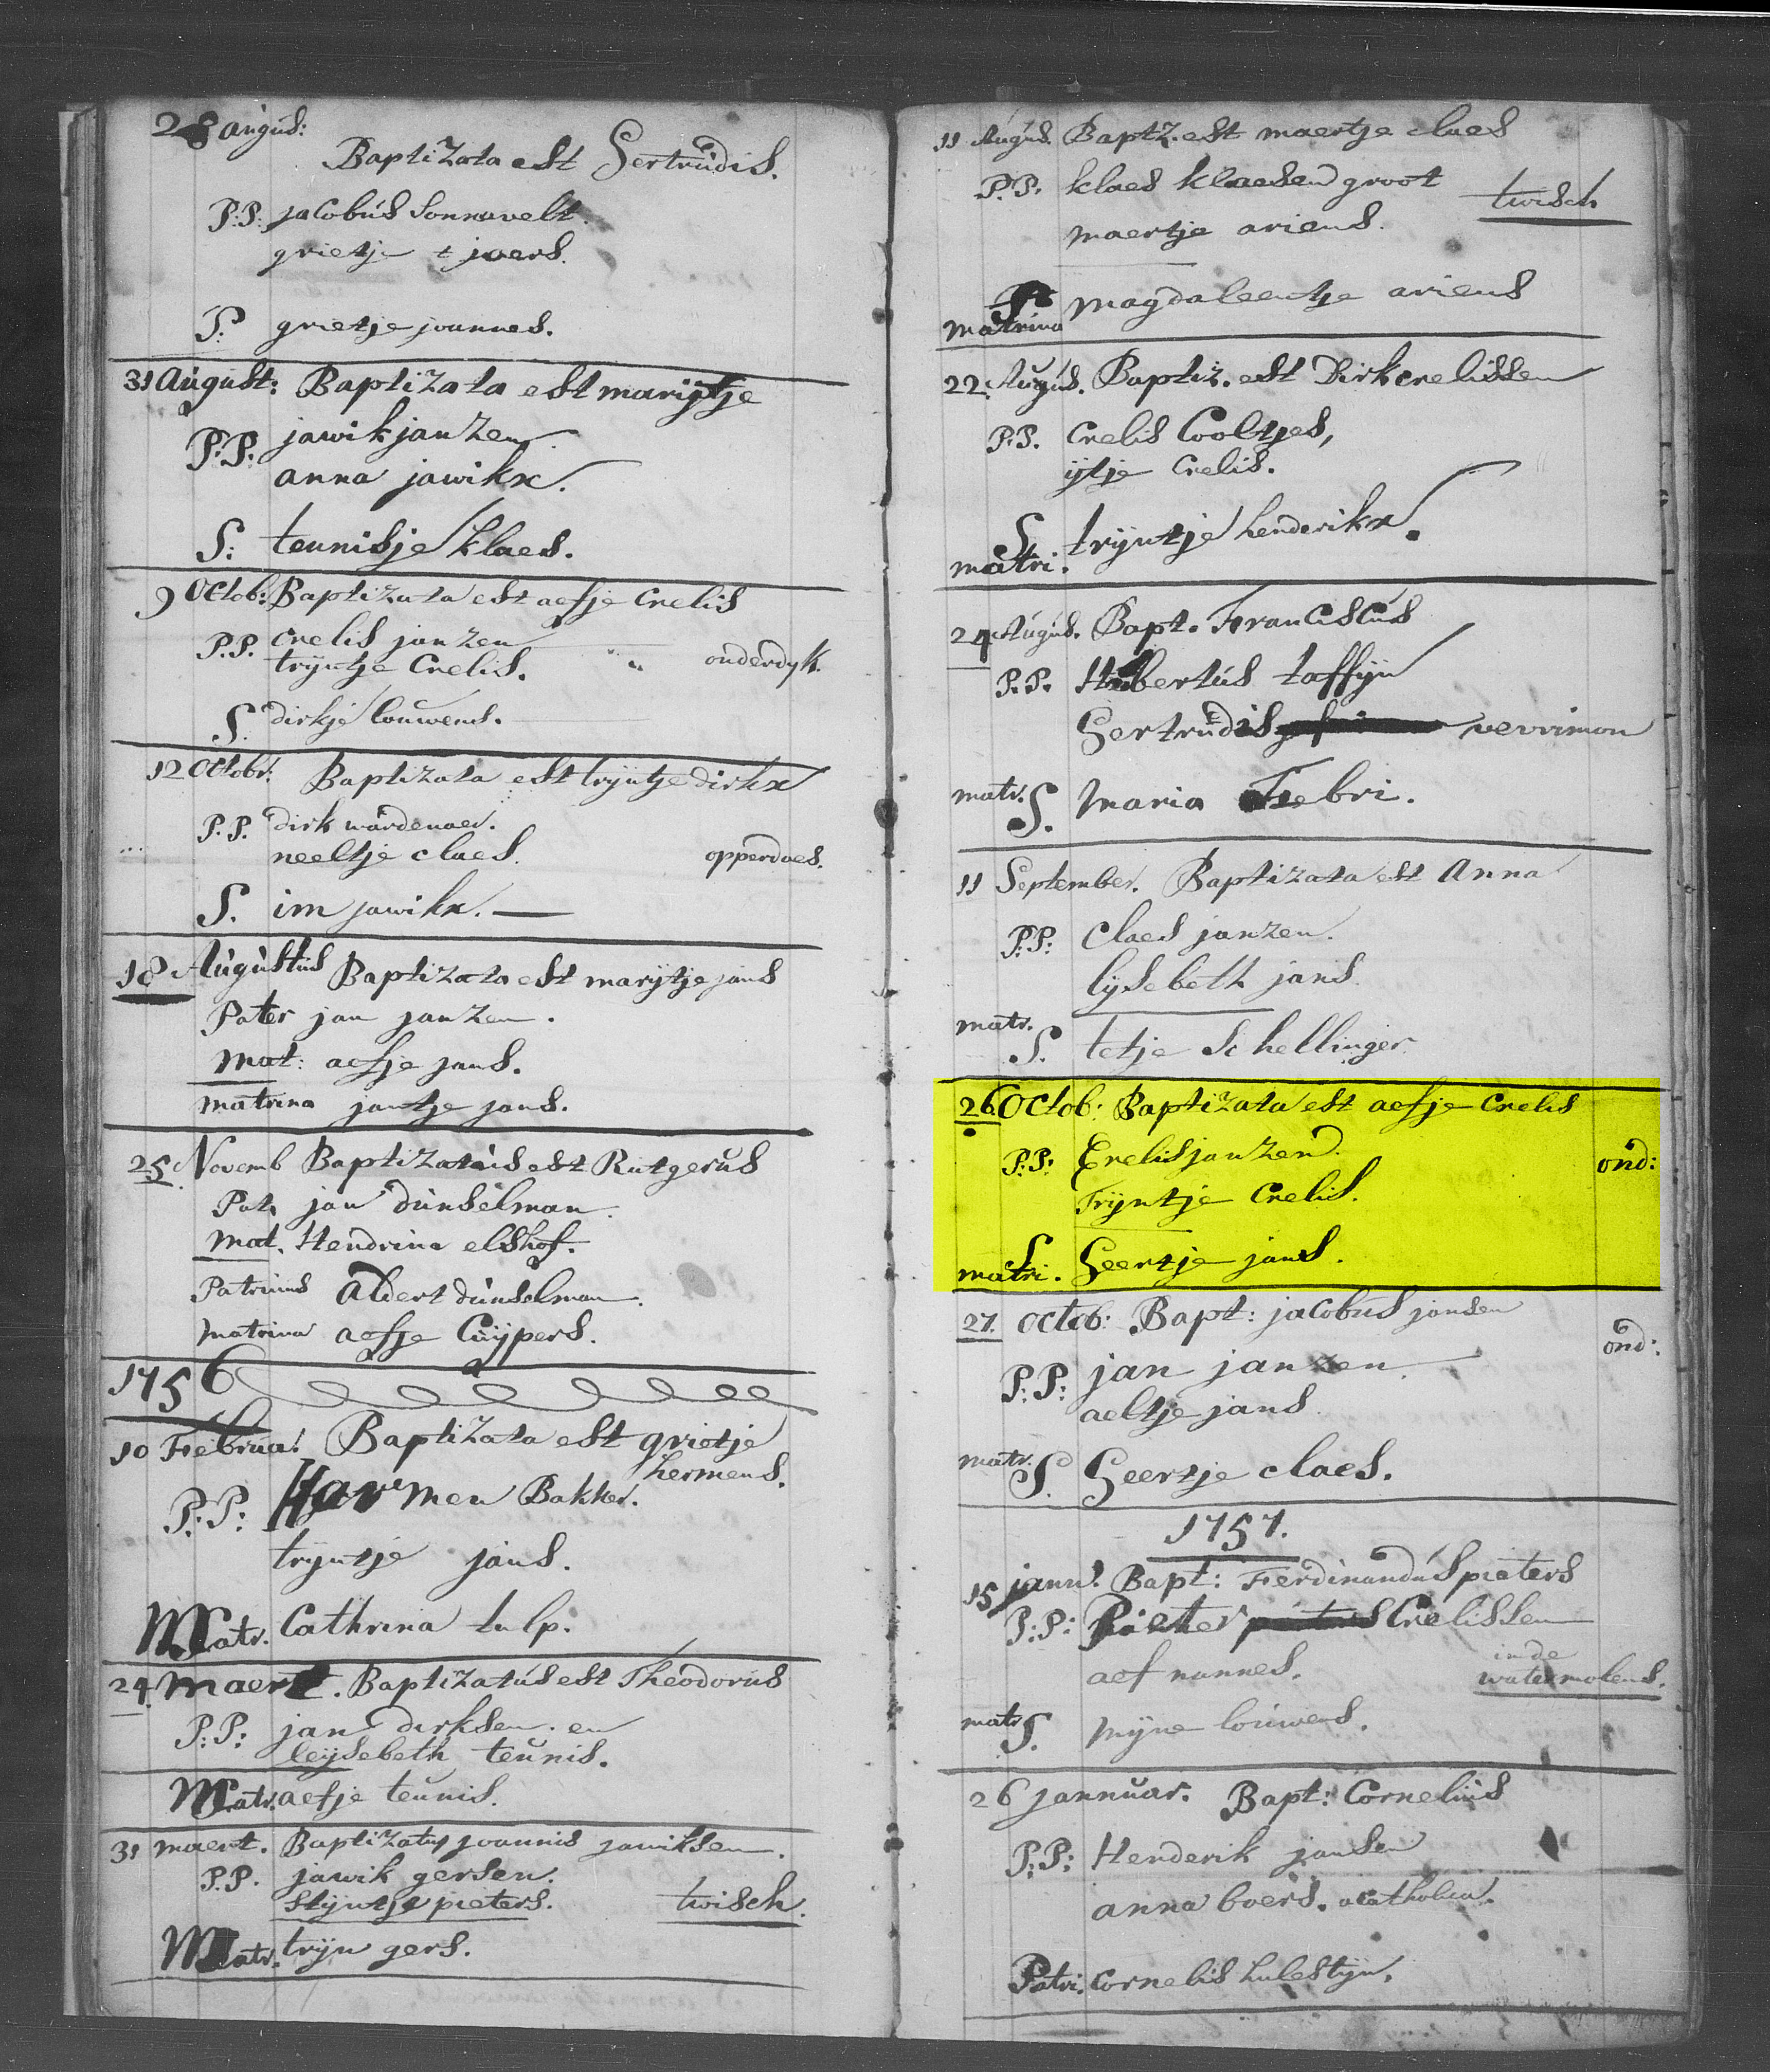 28 augus:
Baptizata est Gertrudis.
P:P: jacobus Sonnavelt.
grietje tjaers.
S: grietje joannes.
31 August: Baptizata est marijtje
P:P: jawik janzen
anna jawikx.
S: teunisje klaes.
9 Octob: Baptizata est aefje Crelis
P.P. crelis janzen
trijntje Crelis. onderdyk.
S. dirkje louwens.
12 Octobr: Baptizata est trijntje dirkx
P.P. dirk wardenaer.
neeltje claes. opperdoes.
S. im jawikx.
18 Augustus Baptizata est marijtje jans
Pater jan janzen.
Mat: aefje jans.
matrina jantje jans.
25 Novemb Baptizatus est Rutgerus
Pat. jan dunselman.
Mat. Hendrina elshof.
Patrinus Aldert dunselman.
Matrina aefje Cuijpers.
1756
10 Februa: Baptizata est grietje
hermens.
P:P: Harmen Bakker.
trijntje jans.
Matr. Cathrina tulp.
24 maert. Baptizatus est Theodorus
P:P: jan dirksen. en
leijsebeth teunis.
Matr. aefje teunis.
31 maert. Baptizatus joannis jawiksen.
P.P. jawik gersen.
Stijntje pieters. twisch.
Matr. trijn gers.
11 Augus. Baptz. est maertje claes
P.P. klaes klaesen groot
twisch
maertje ariens.
S magdaleentje ariens
matrina
22. Augus. Baptiz. est Dirk crelissen
P.P. Crelis Cooltjes,
ijtje Crelis.
S. trijntje henderikx.
matri.
24 Augus. Bapt. Franciscus
P.P. Hubertus taffijn
Gertrudis verrimon
matr. S. Maria Febri.
11 September. Baptizata est Anna
P:P: Claes janzen.
lijsebeth jans.
matr. S. tetje Schellinger.
26 Octob: Baptizata est aefje Crelis
P:P: Crelis janzen. ond:
Trijntje Crelis.
S Geertje jans.
matri.
27. octob: Bapt: jacobus jansen
P:P: jan janzen. ond:
aeltje jans.
matr. S. Geertje claes.
1757.
15 janu. Bapt: Ferdinandus pieters
P:P: Pieter Crelissen
aef nannes. in de
watermolens.
matr S. Mijne louwens.
26 jannuar. Bapt: Cornelius
P:P: Henderik jansen
anna boers. acatholica.
Patri. cornelis hulestijn.